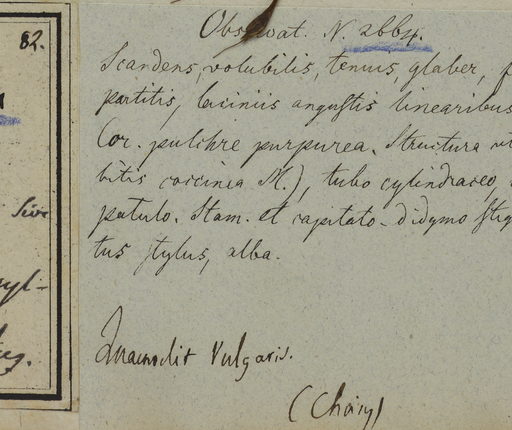 82.
Observat. N. 2664.
Scandens, volubilis, tenuis, glaber, f
partitis, laciniis angustis linearibus
Cor. pulchre purpurea. Structura ut
bitis coccinea M.), tubo cylindraceo,
patulo. Stam. et capitato-didymo stig
tus stylus, alba.
Sive
Quamoclit Vulgaris.
(Choisy)